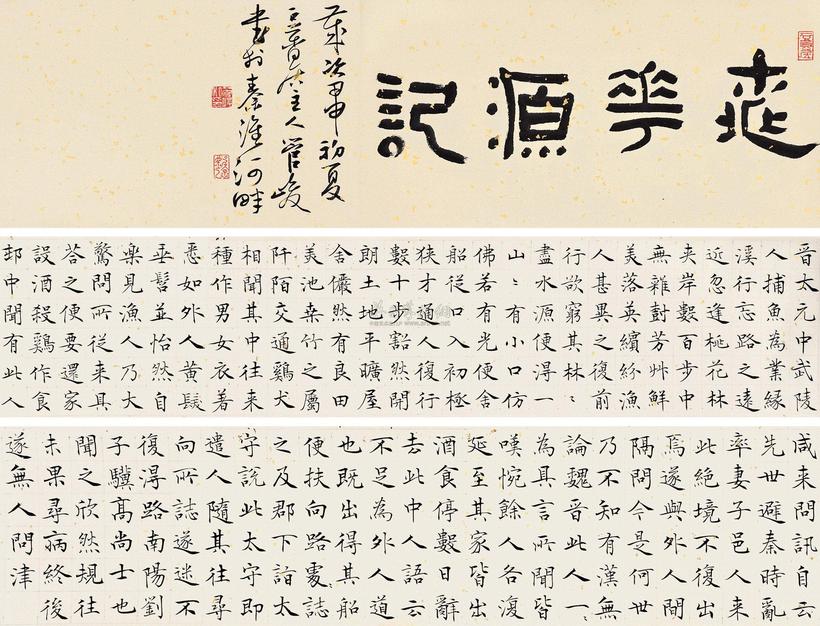 桃華源記
歲次甲申初夏
主人管峻
書於秦淮河畔
晉太元中武陵
人捕魚為業緣
溪行忘路之遠
近忽逢桃花林
夾岸數百步中
無雜尌芳艸鮮
美落英繽紛漁
人甚異之復前
行欲窮其林〻
盡水源便得一
山〻有小口仿
佛若有光便舍
船從口入初極
狹才通人復行
數十步豁然開
朗土地平曠屋
舍儼然有良田
美池桑竹之屬
阡陌交通鷄犬
相聞其中往来
種作男女衣著
悉如外人黃髮
垂髫並怡然自
樂見漁人乃大
驚問所從来具
荅之便要還家
設酒殺鷄作食
邨中聞有此人
咸来問訊自云
先世避秦時亂
率妻子邑人来
此絕境不復出
焉遂與外人間
隔問今是何世
乃不知有漢無
論魏晉此人一〻
為具言所聞皆
嘆惋餘人各復
延至其家皆出
酒食停數日辭
去此中人語云
不足為外人道
也既出得其船
便扶向路處誌
之及郡下詣太
守說此太守即
遣人隨其往尋
向所誌遂迷不
復得路南陽劉
子驥高尚士也
聞之欣然規往
未果尋病終後
遂無人問津